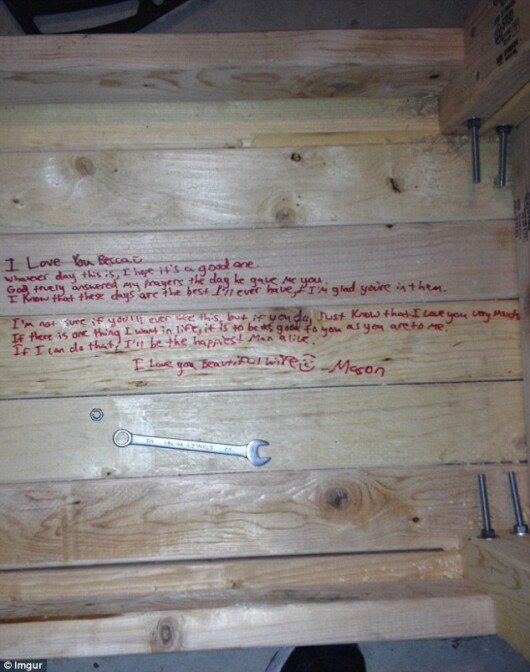 I Love You Becca
Whatever day this is, I hope it's a good one.
God truely answered my prayers the day he gave me you.
I know that these days are the best I'll ever have, & I'm glad you're in them.
I'm not sure if you'll ever see this, but if you do, Just Know that I Love you very Much!
If there is one thing I want in life, it is to be as good to you as you are to me.
If I can do that, I'll be the happiest Man alive.
I Love you Beautiful Wife -Mason
STANLEY
© Imgur